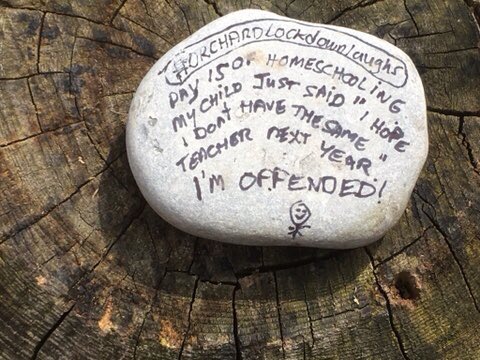 #ORCHARDLOCKdownlaughs
DAY 150. HOMESCHOOLING
MY CHILD JUST SAID "I HOPE
I DONT HAVE THE SAME
TEACHER NEXT YEAR."
I'M OFFENDED!